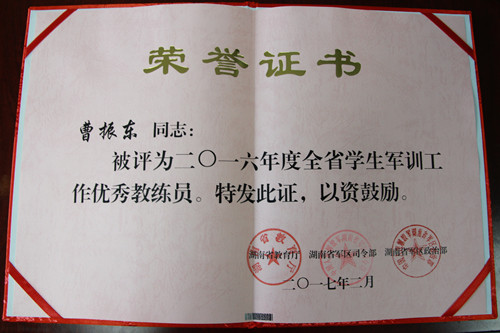 荣誉证书
曹振东 同志：
被评为二〇一六年度全省学生军训工
作优秀教练员。特发此证，以资鼓励。
湖南省教育厅 湖南省军区司令部 湖南省军区政治部
二〇一七年二月